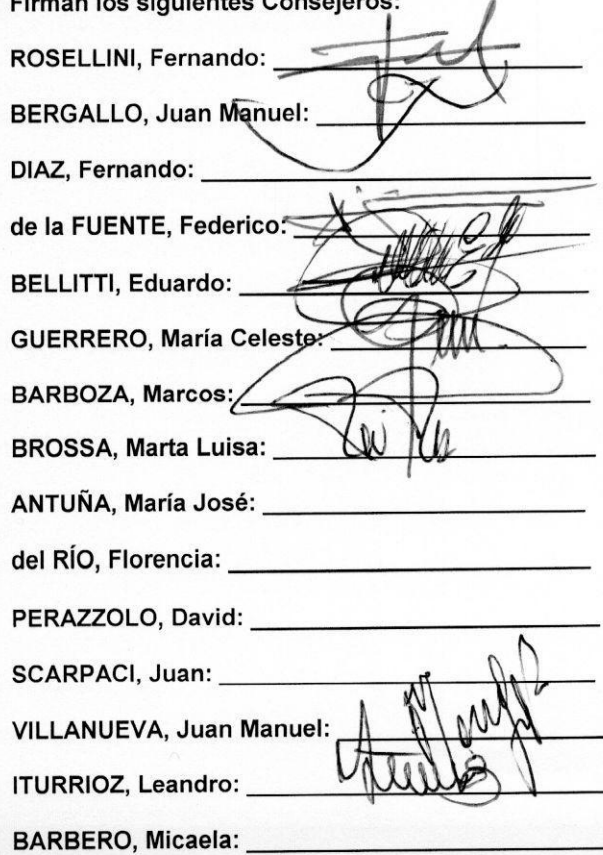 Firman los siguientes Consejeros:
ROSELLINI, Fernando:
BERGALLO, Juan Manuel:
DIAZ, Fernando:
de la FUENTE, Federico:
BELLITTI, Eduardo:
GUERRERO, María Celeste:
BARBOZA, Marcos:
BROSSA, Marta Luisa:
ANTUÑA, María José:
del RÍO, Florencia:
PERAZZOLO, David:
SCARPACI, Juan:
VILLANUEVA, Juan Manuel:
ITURRIOZ, Leandro:
BARBERO, Micaela: